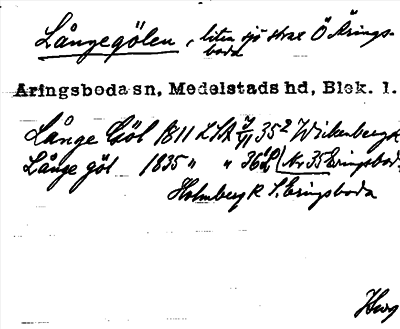 Långegölen, liten sjö strax Ö Årings-
boda
Aringsboda sn, Medelstads hd, Blek. l.
Långe Göl 1811 LSA 35² Wickenberg k
Långe göl 1835 " " 36 Nr 35 Eringsboda
Holmberg k S. Eringsboda